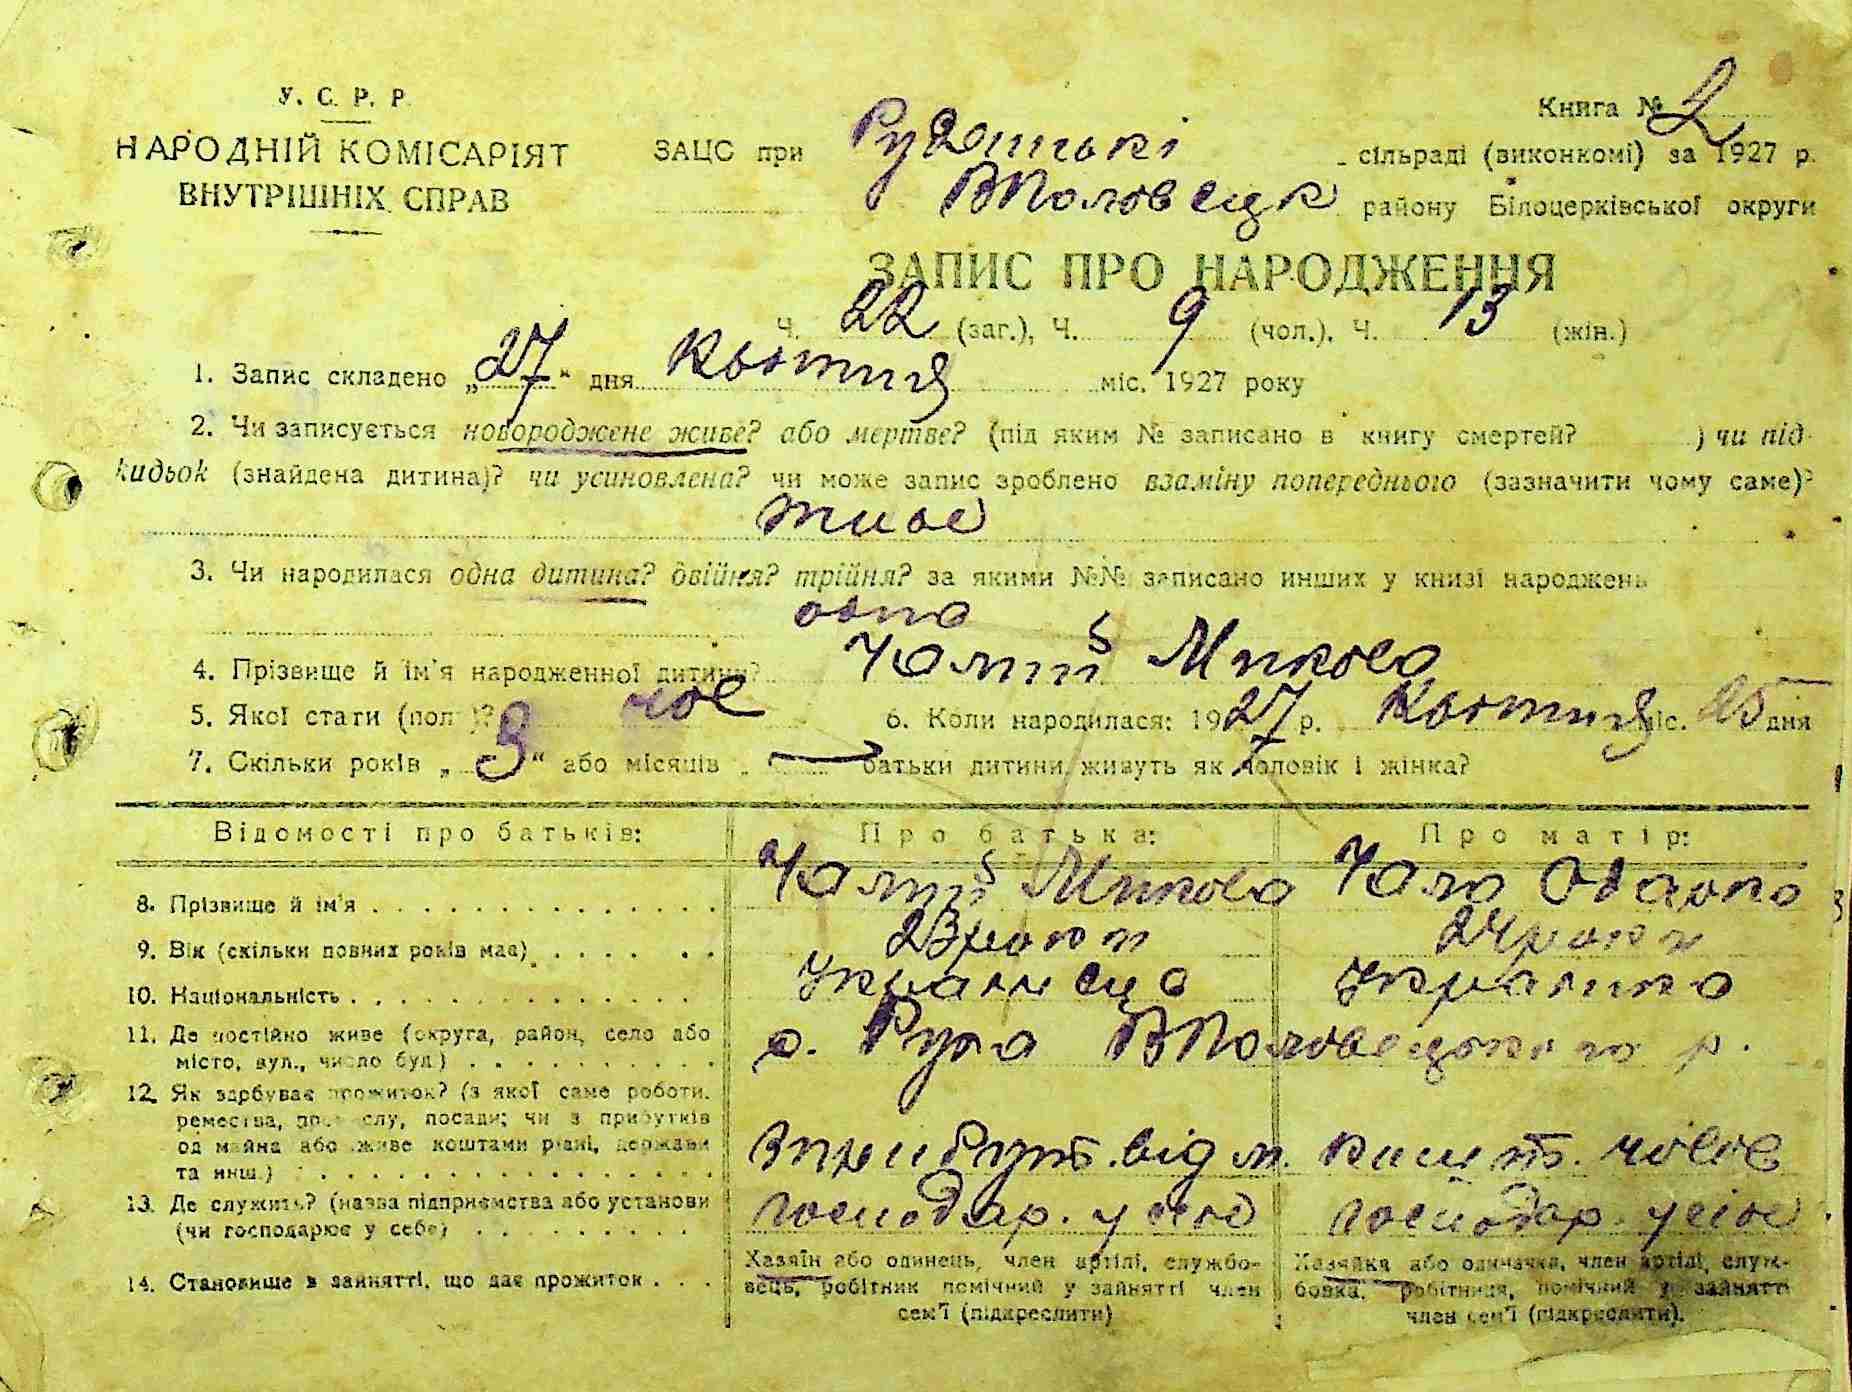 У. С. Р. Р.
НАРОДНІЙ КОМІСАРІЯТ
ВНУТРІШНІХ СПРАВ
Книга № 2
ЗАЦС при сільраді (виконкомі) за 1927 р.
ВПоловецьк району Білоцерківської округи
ЗАПИС ПРО НАРОДЖЕННЯ
Ч. 22 (заг.), Ч. 9 (чол.), Ч. 13 (жін.)
1. Запис складено „27" дня Квітня міс. 1927 року
2. Чи записується новороджене живе? або мертве? (під яким № записано в книгу смертей? ) чи під-
кидьок (знайдена дитина)? чи усиновлена? чи може запис зроблено взаміну попереднього (зазначити чому саме)?
живе
3. Чи народилася одна дитина? двійня? трійня? за якими №№ записано инших у книзі народжень
одна
4. Прізвище й ім'я народженної дитини? Микола
5. Якої стати (пол )? чол 6. Коли народилася: 1927 р. Квітня міс. 25 дня
7. Скільки років „3" або місяців „ батьки дитини живуть як чоловік і жінка?
Відомості про батьків:
Про батька:
Про матір:
8. Прізвище й ім'я Микола Одарка
9. Вік (скільки повних років має) 23 роки 24 роки
10. Національність Українець Українка
11. Де постійно живе (округа, район, село або
місто, вул., число буд.) с. Руда ВПоловецького р.
12. Як здобуває прожиток? (з якої саме роботи,
ремества, промислу, посади; чи з прибутків
од майна або живе коштами рідні, держави
та инш.) З прибутк. від м. кошт. чолов
13. Де служить? (назва підприємства або установи
(чи господарює у себе) господар. у себе господар. у себе
14. Становище в зайнятті, що дає прожиток
Хазяїн або одинець, член артілі, службо-
вець, робітник помічний у зайнятті член
сем'ї (підкреслити)
Хазяйка або одиначка, член артілі, служ-
бовка, робітниця, помічний у зайнятті
член сем'ї (підкреслити).